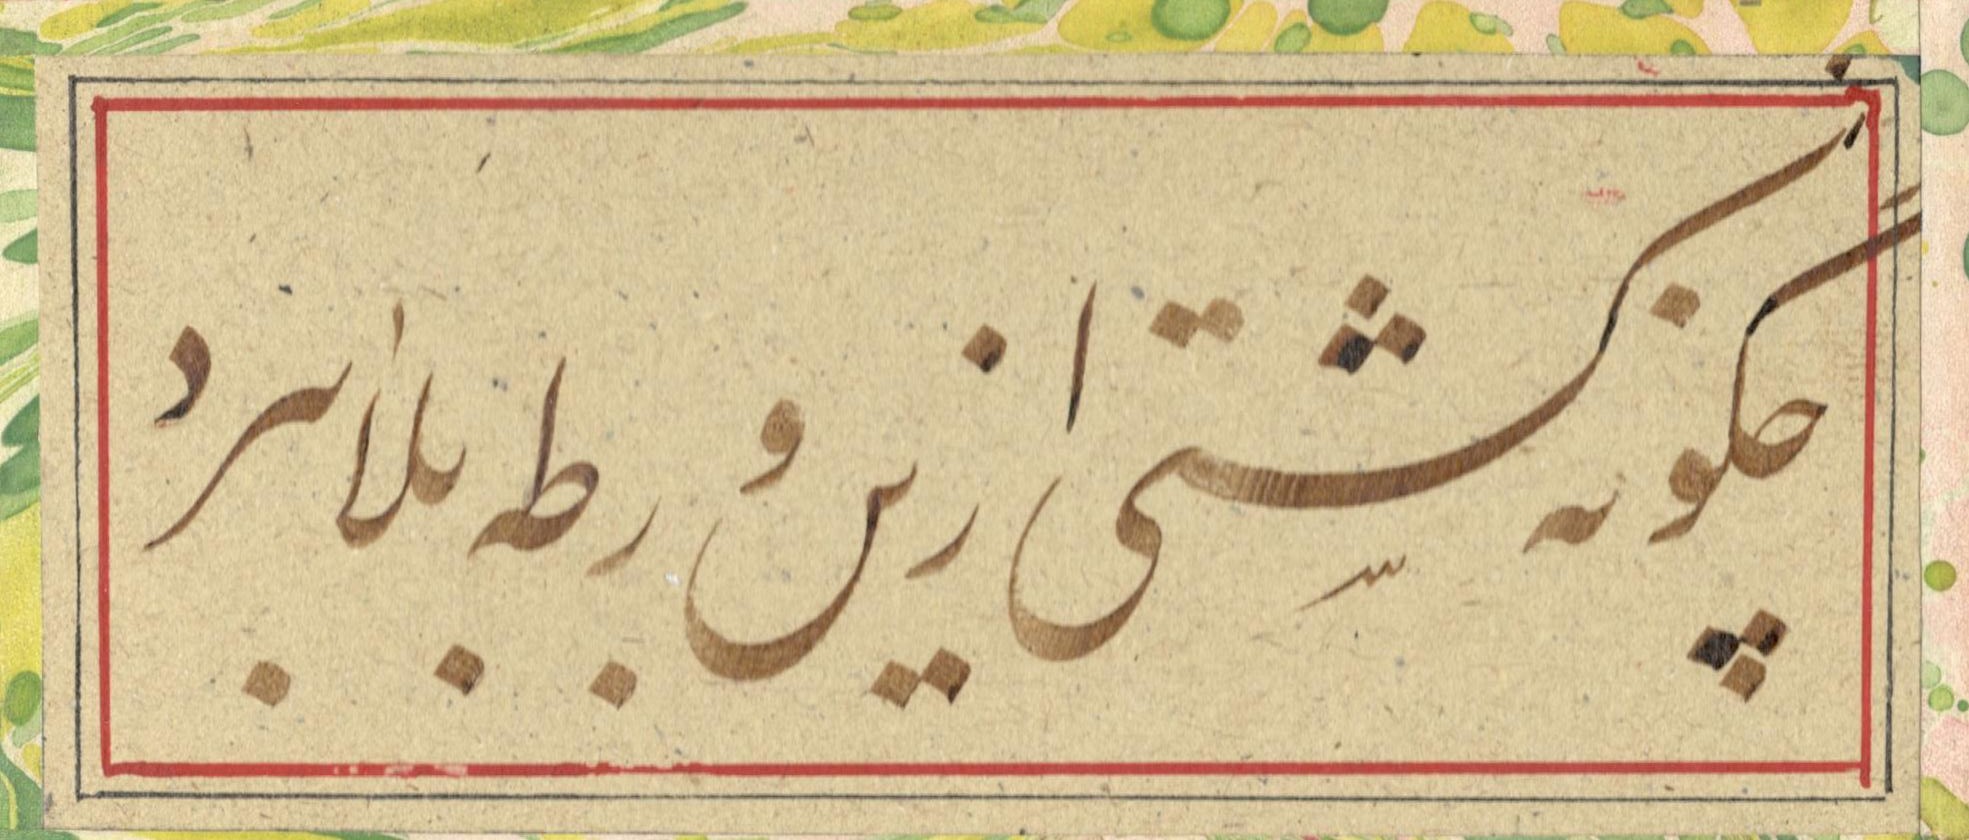 چگونه کشتی ازین ورطه بلا ببرد